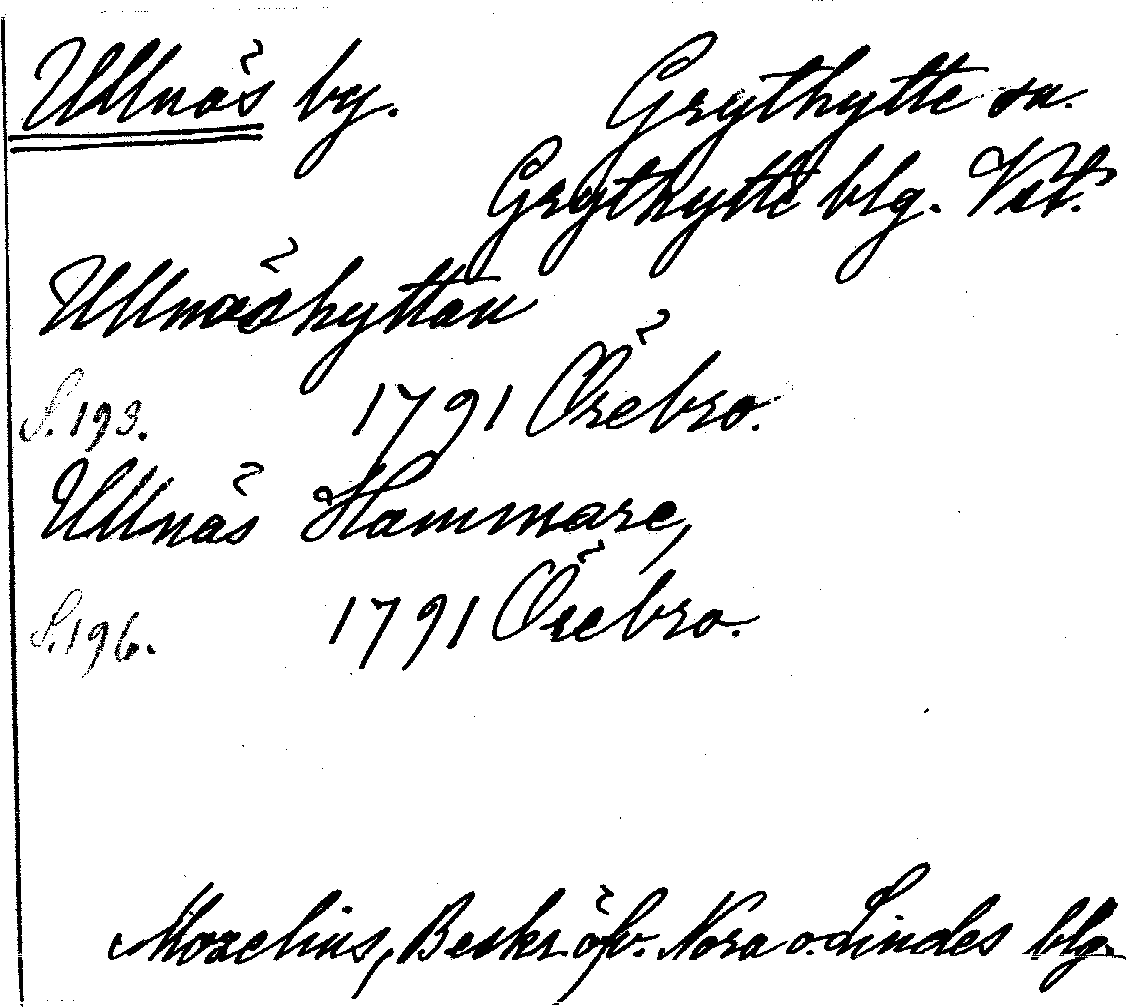 Ullnäs by. Grythytte sn.
Grythytte blg. Vstm.
Ullnäshyttan
S. 193. 1791 Örebro.
Ullnäs Hammare,
S. 196. 1791 Örebro.
Morelius, Beskr öfv. Nora o. Lindes blg.